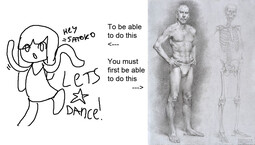 HEY
SATOKO
LETS
DANCE!
To be able
to do this
<---
You must
first be able
to do this
--->